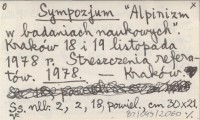 Sympozjum "Alpinizm
w badaniach naukowych".
Kraków 18 i 19 listopada
1978 r. Streszczenia refera-
tów. 1978. — Kraków.
Ss. nlb. 2, 2, 18, powiel., cm 30x21,